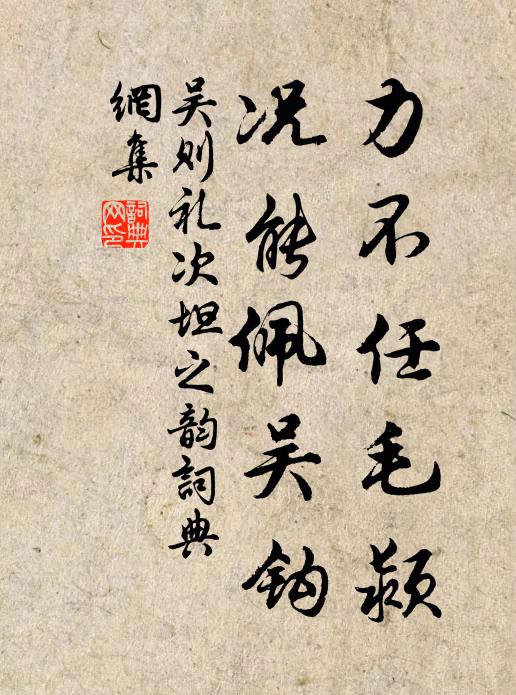 力不任毛颖
况能佩吴钩
吴则礼次坦之韵詞典
網集
詞典
网印